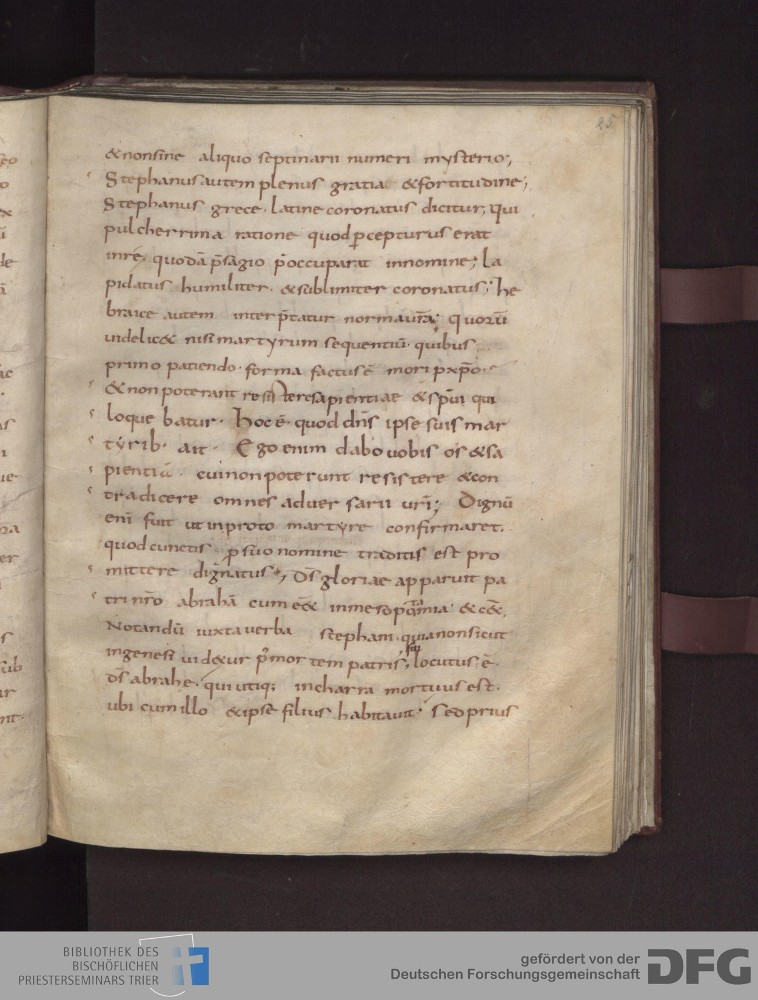 25
&nonsine aliquo septinarii numeri mysterio;,
Stephanus autem plenus gratia &fortitudine;,
Stephanus grece. latine coronatus dicitur; qui
pulcherrima ratione quod pcepturus erat
inre. quodā p̄sagio p̄occuparat innomine; la
pidatus humiliter. &sublimiter coronatus; he
braice autem interp̄tatur norma ur̄a; quorū
uidelic& nisi martyrum sequentiū. quibus
primo patiendo. forma factus ē mori p xp̄o.
&non poterant resistere sapientiae &sp̄ui qui
loquebatur. hoc ē. quod dn̄s ipse suis mar
tyrib. ait. Ego enim dabo uobis os &sa
pientiā. cui non poterunt resistere &con
tradicere omnes aduersarii ur̄i; Dignū
eni fuit ut in proto martyre confirmaret.
quod cunctis p suo nomine traditis est pro
mittere dignatus; Ds̄ gloriae apparuit pa
tri nr̄o abrahā cum ee& in mesopotamia &c&.
Notandū iuxta uerba stephani. quia non sicut
in genesi uid&ur p̄ mortem patris; sic locutus ē.
ds̄ abrahe. qui utiq; in charra mortuus est.
ubi cum illo &ipse filius habitauit. sed prius
BIBLIOTHEK DES
BISCHÖFLICHEN
PRIESTERSEMINARS TRIER
gefördert von der
Deutschen Forschungsgemeinschaft
DFG